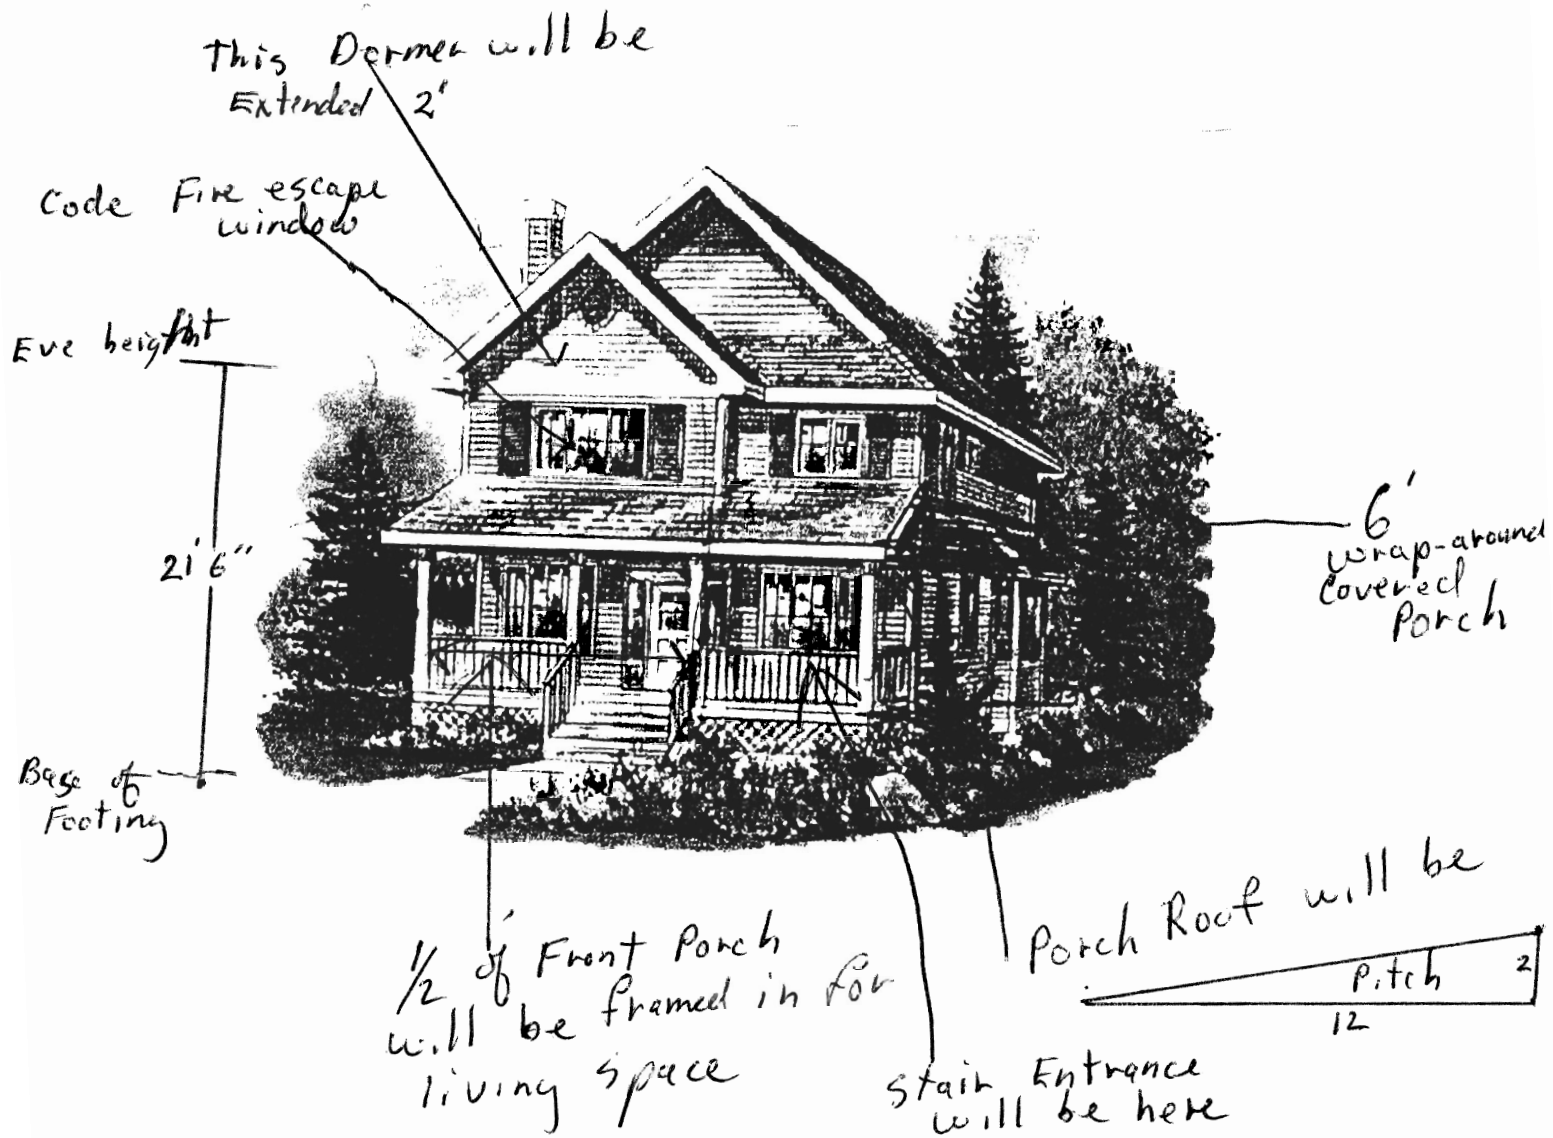 This Dormer will be
Extended 2'
Code Fire escape
window
Eve height
21' 6"
Base of
Footing
6'
wrap-around
covered
Porch
1/2 of Front Porch
will be framed in for
living space
Porch Roof will be
Pitch
2
12
Stair Entrance
will be here